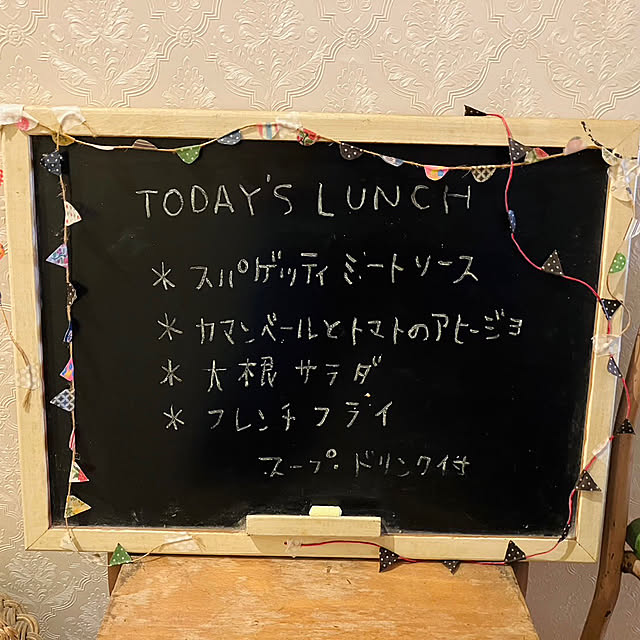 TODAY'S LUNCH
* スパゲッティ ミートソース
* カマンベールとトマトのアヒージョ
* 大根 サラダ
* フレンチフライ
スープ・ドリンク付